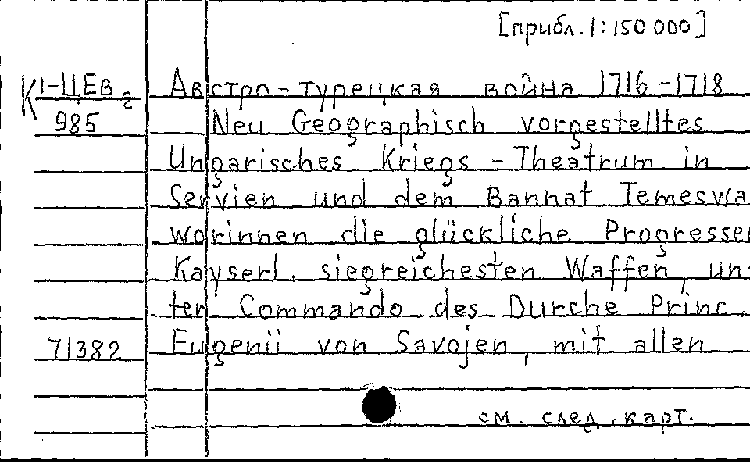 [прибл. 1:150 000]
К 1-ЦЕв 2
985
Австро-турецкая война 1716-1718
Neu Geographisch vorgestelltes
Ungarisches Kriegs-Theatrum in
Servien und dem Bannat Temeswa
worinnen die glückliche Progressen
Kayserl. siegreichesten Waffen, un
ter Commando des Durche Princ.
71382
Eugenii von Savojen, mit allen
см. след. карт.